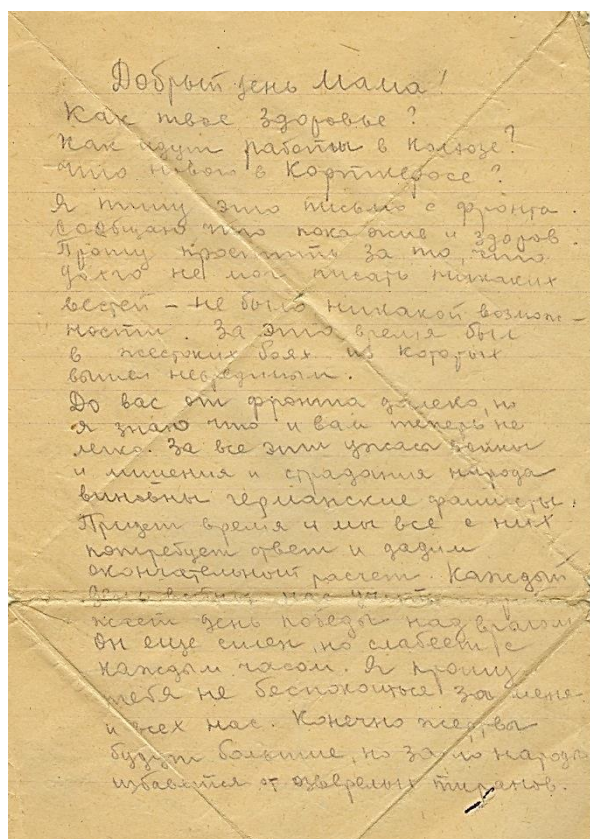 Добрый день Мама!
Как твое здоровье?
Как идут работы в колхозе?
Что нового в Корткеросе?
Я пишу это письмо с фронта.
Сообщаю что пока жив и здоров.
Прошу простить за то, что
долго не мог писать никаких
вестей – не было никакой возмож-
ности. За это время был
в жестоких боях из которых
вышел невредимым.
До вас от фронта далеко, но
я знаю что и вам теперь не
легко. За все эти ужасы войны
и лишения и страдания народа
виновны германские фашисты.
Придет время и мы все с них
потребует ответ и дадим
окончательный расчет. Каждый
день
жает день победы над врагом
Он еще силен, но слабеет с
каждым часом. Я прошу
тебя не беспокоиться за меня
и всех нас. Конечно жертвы
будут большие, но за то народы
избавятся от озверелых тиранов.